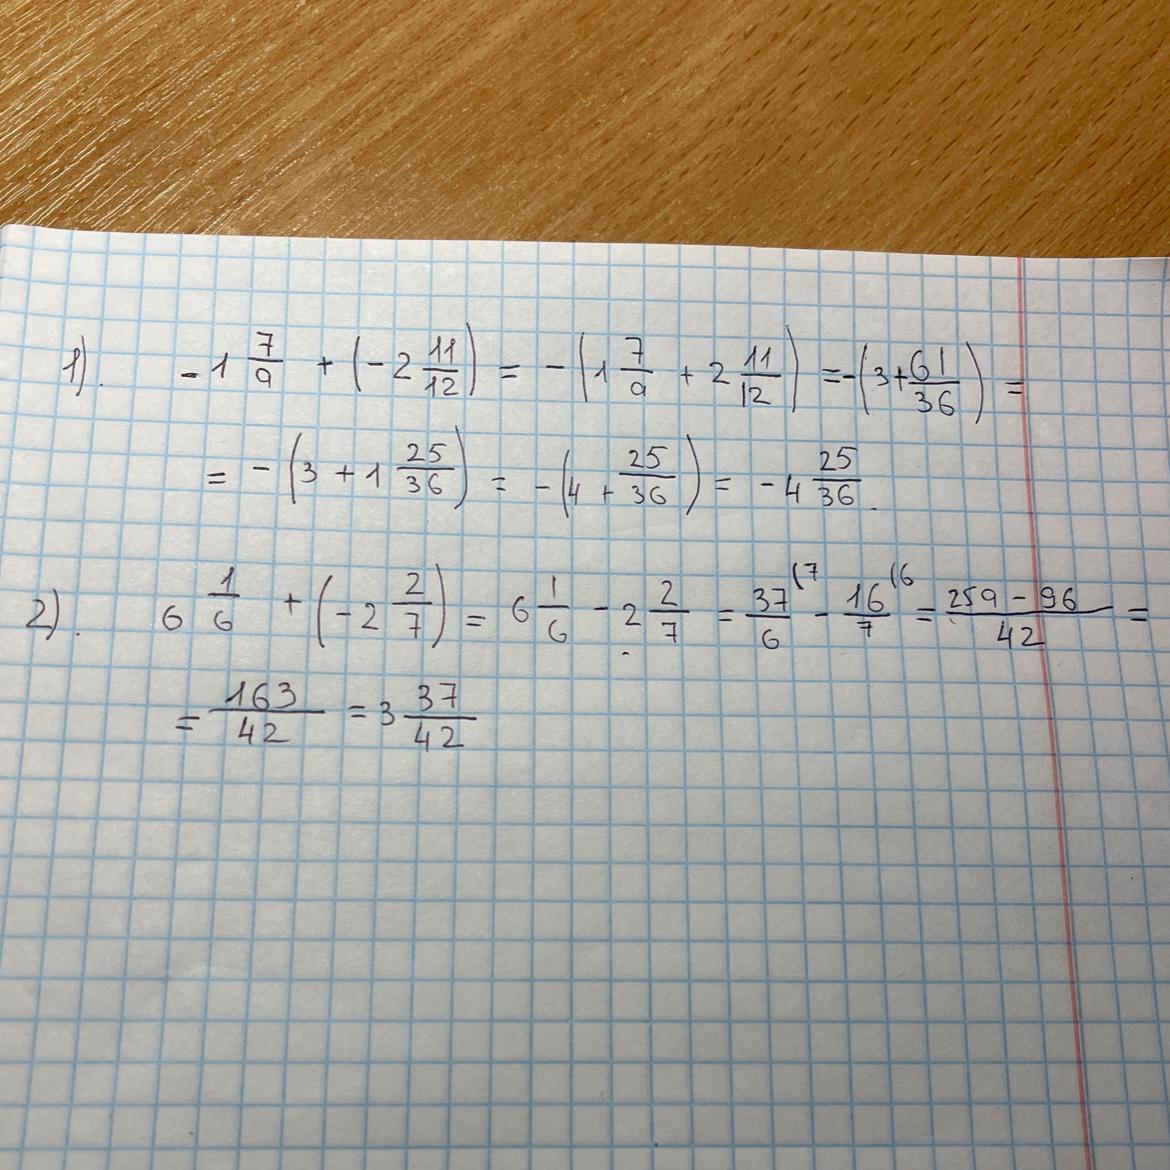 1). -1 7/9 + (-2 11/12) = -(1 7/9 + 2 11/12) = -(3+61/36) =
= -(3 + 1 25/36) = -(4 + 25/36) = -4 25/36.
2). 6 1/6 + (-2 2/7) = 6 1/6 - 2 2/7 = 37/6 (7 - 16/7 (6 = 259 - 96/42 =
= 163/42 = 3 37/42